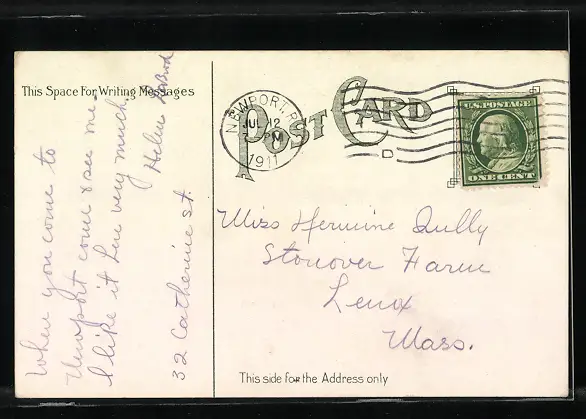 This Space For Writing Messages
POST CARD
NEWPORT, R.
JUL 12
PM
1911
D
U.S. POSTAGE
ONE CENT
When you come to
Newport come & see me.
I like it here very much.
Helen
32 Catherine St.
Miss Hermine Tully
Stonover Farm
Lenox
Mass.
This side for the Address only